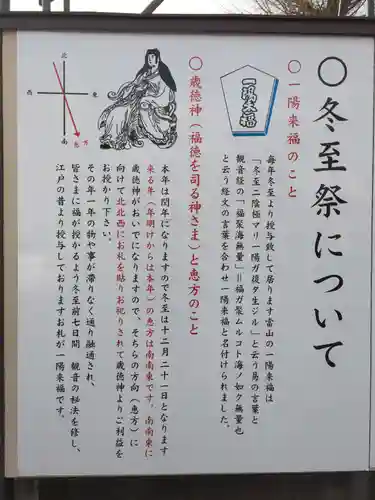 ○冬至祭について
○一陽来福のこと
毎年冬至より授与致して居ります当山の一陽来福は
「冬至ハ陰極マリ一陽ガ復タ生ジル」と云う易の言葉と
観音経の「福聚海無量」=福ガ聚ムルコト海ノ如ク無量也
と云う経文の言葉を合わせ一陽来福と名付けられました。
一陽来福
○歳徳神(福徳を司る神さま)と恵方のこと
本年は閏年になりますので冬至は十二月二十一日となります
来る年(年明けからは本年)の恵方は南南東です。南南東に
歳徳神がおいでになりますので、そちらの方向(恵方)に
向けて北北西にお札を貼りお祀りされて歳徳神よりご利益を
お授かり下さい。
その年一年の物や事が滞りなく通り融通され、
皆さまに福が授かるよう冬至前七日間 観音の秘法を修し、
江戸の昔より授与しておりますお札が一陽来福です。
北
西
東
南
恵方